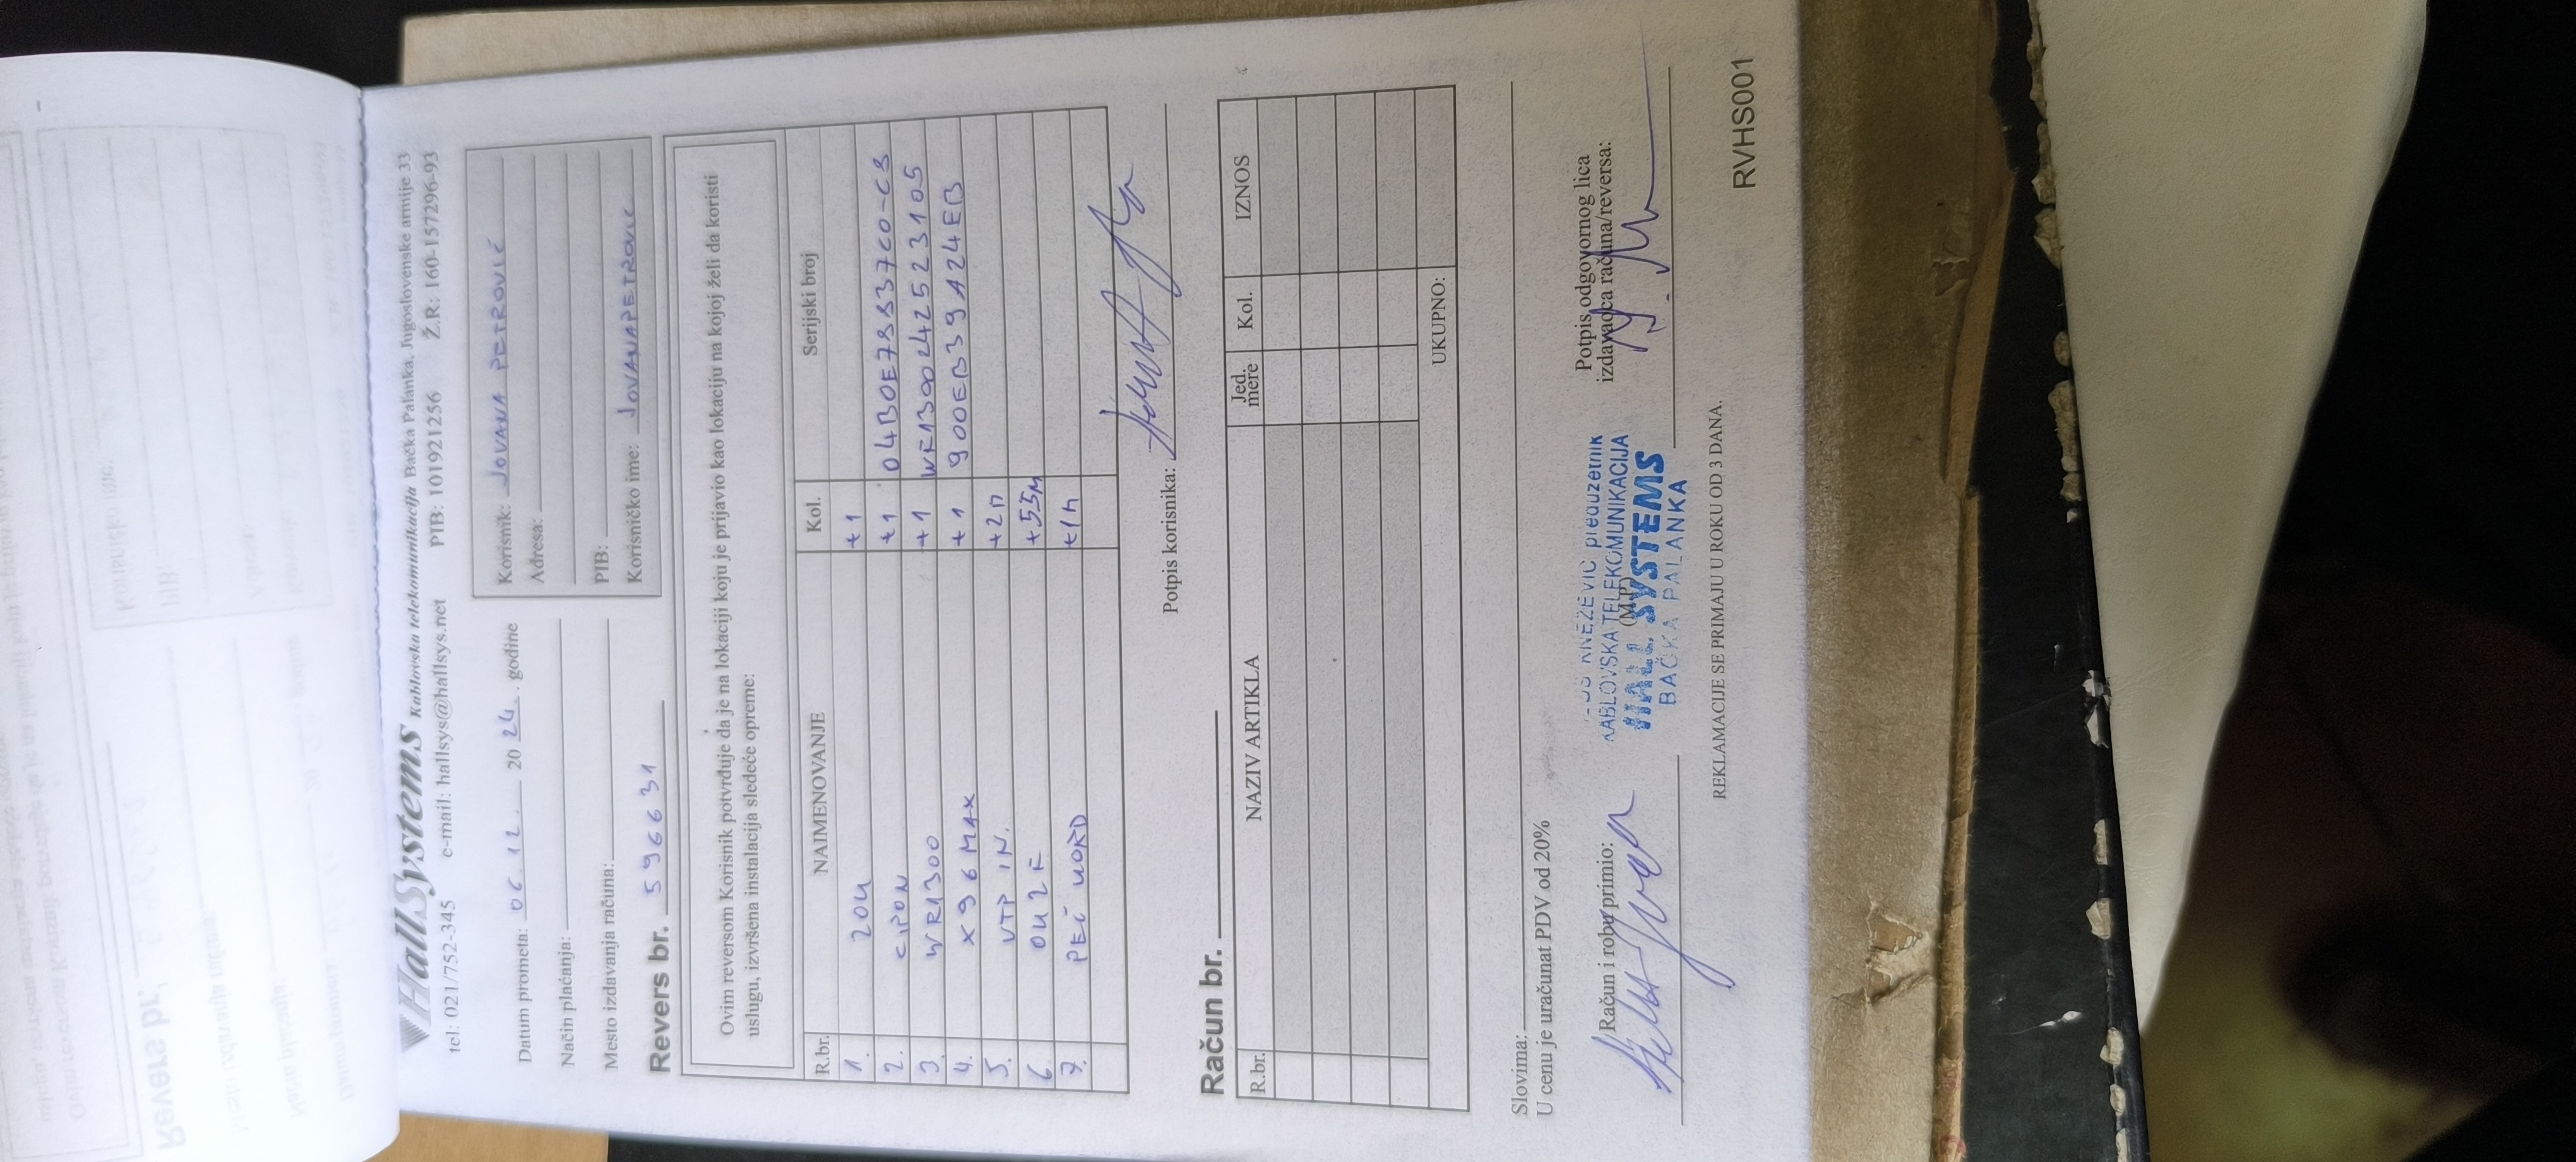 HallSystems Kablovska telekomunikacija Bačka Palanka, Jugoslovenske armije 33
tel: 021/752-345 e-mail: hallsys@hallsys.net PIB: 101921256 Ž.R: 160-157296-93
Datum prometa: 06.12. 2024. godine
Način plaćanja:
Mesto izdavanja računa:
Korisnik: JOVANA PETROVIĆ
Adresa:
PIB:
Korisničko ime: JOVANAPETROVIC
Revers br. 596631
Ovim reversom Korisnik potvrđuje da je na lokaciji koju je prijavio kao lokaciju na kojoj želi da koristi
uslugu, izvršena instalacija sledeće opreme:
R.br. NAIMENOVANJE Kol. Serijski broj
1. ZOU +1
2. CIPON +1
3. WR1300 +1 WR1300242523105
4. X96 MAX +1 900EB39A24EB
5. UTP IN. +2n
6. OU2F +55M
7.
Potpis korisnika:
Račun br.
R.br. NAZIV ARTIKLA Jed. mere Kol. IZNOS
UKUPNO:
Slovima:
U cenu je uračunat PDV od 20%
Račun i robu primio:
(M.P)
KNEŽEVIĆ preduzetnik
KABLOVSKA TELEKOMUNIKACIJA
HALL SYSTEMS
BAČKA PALANKA
Potpis odgovornog lica
izdavaoca računa/reversa:
REKLAMACIJE SE PRIMAJU U ROKU OD 3 DANA.
RVHS001